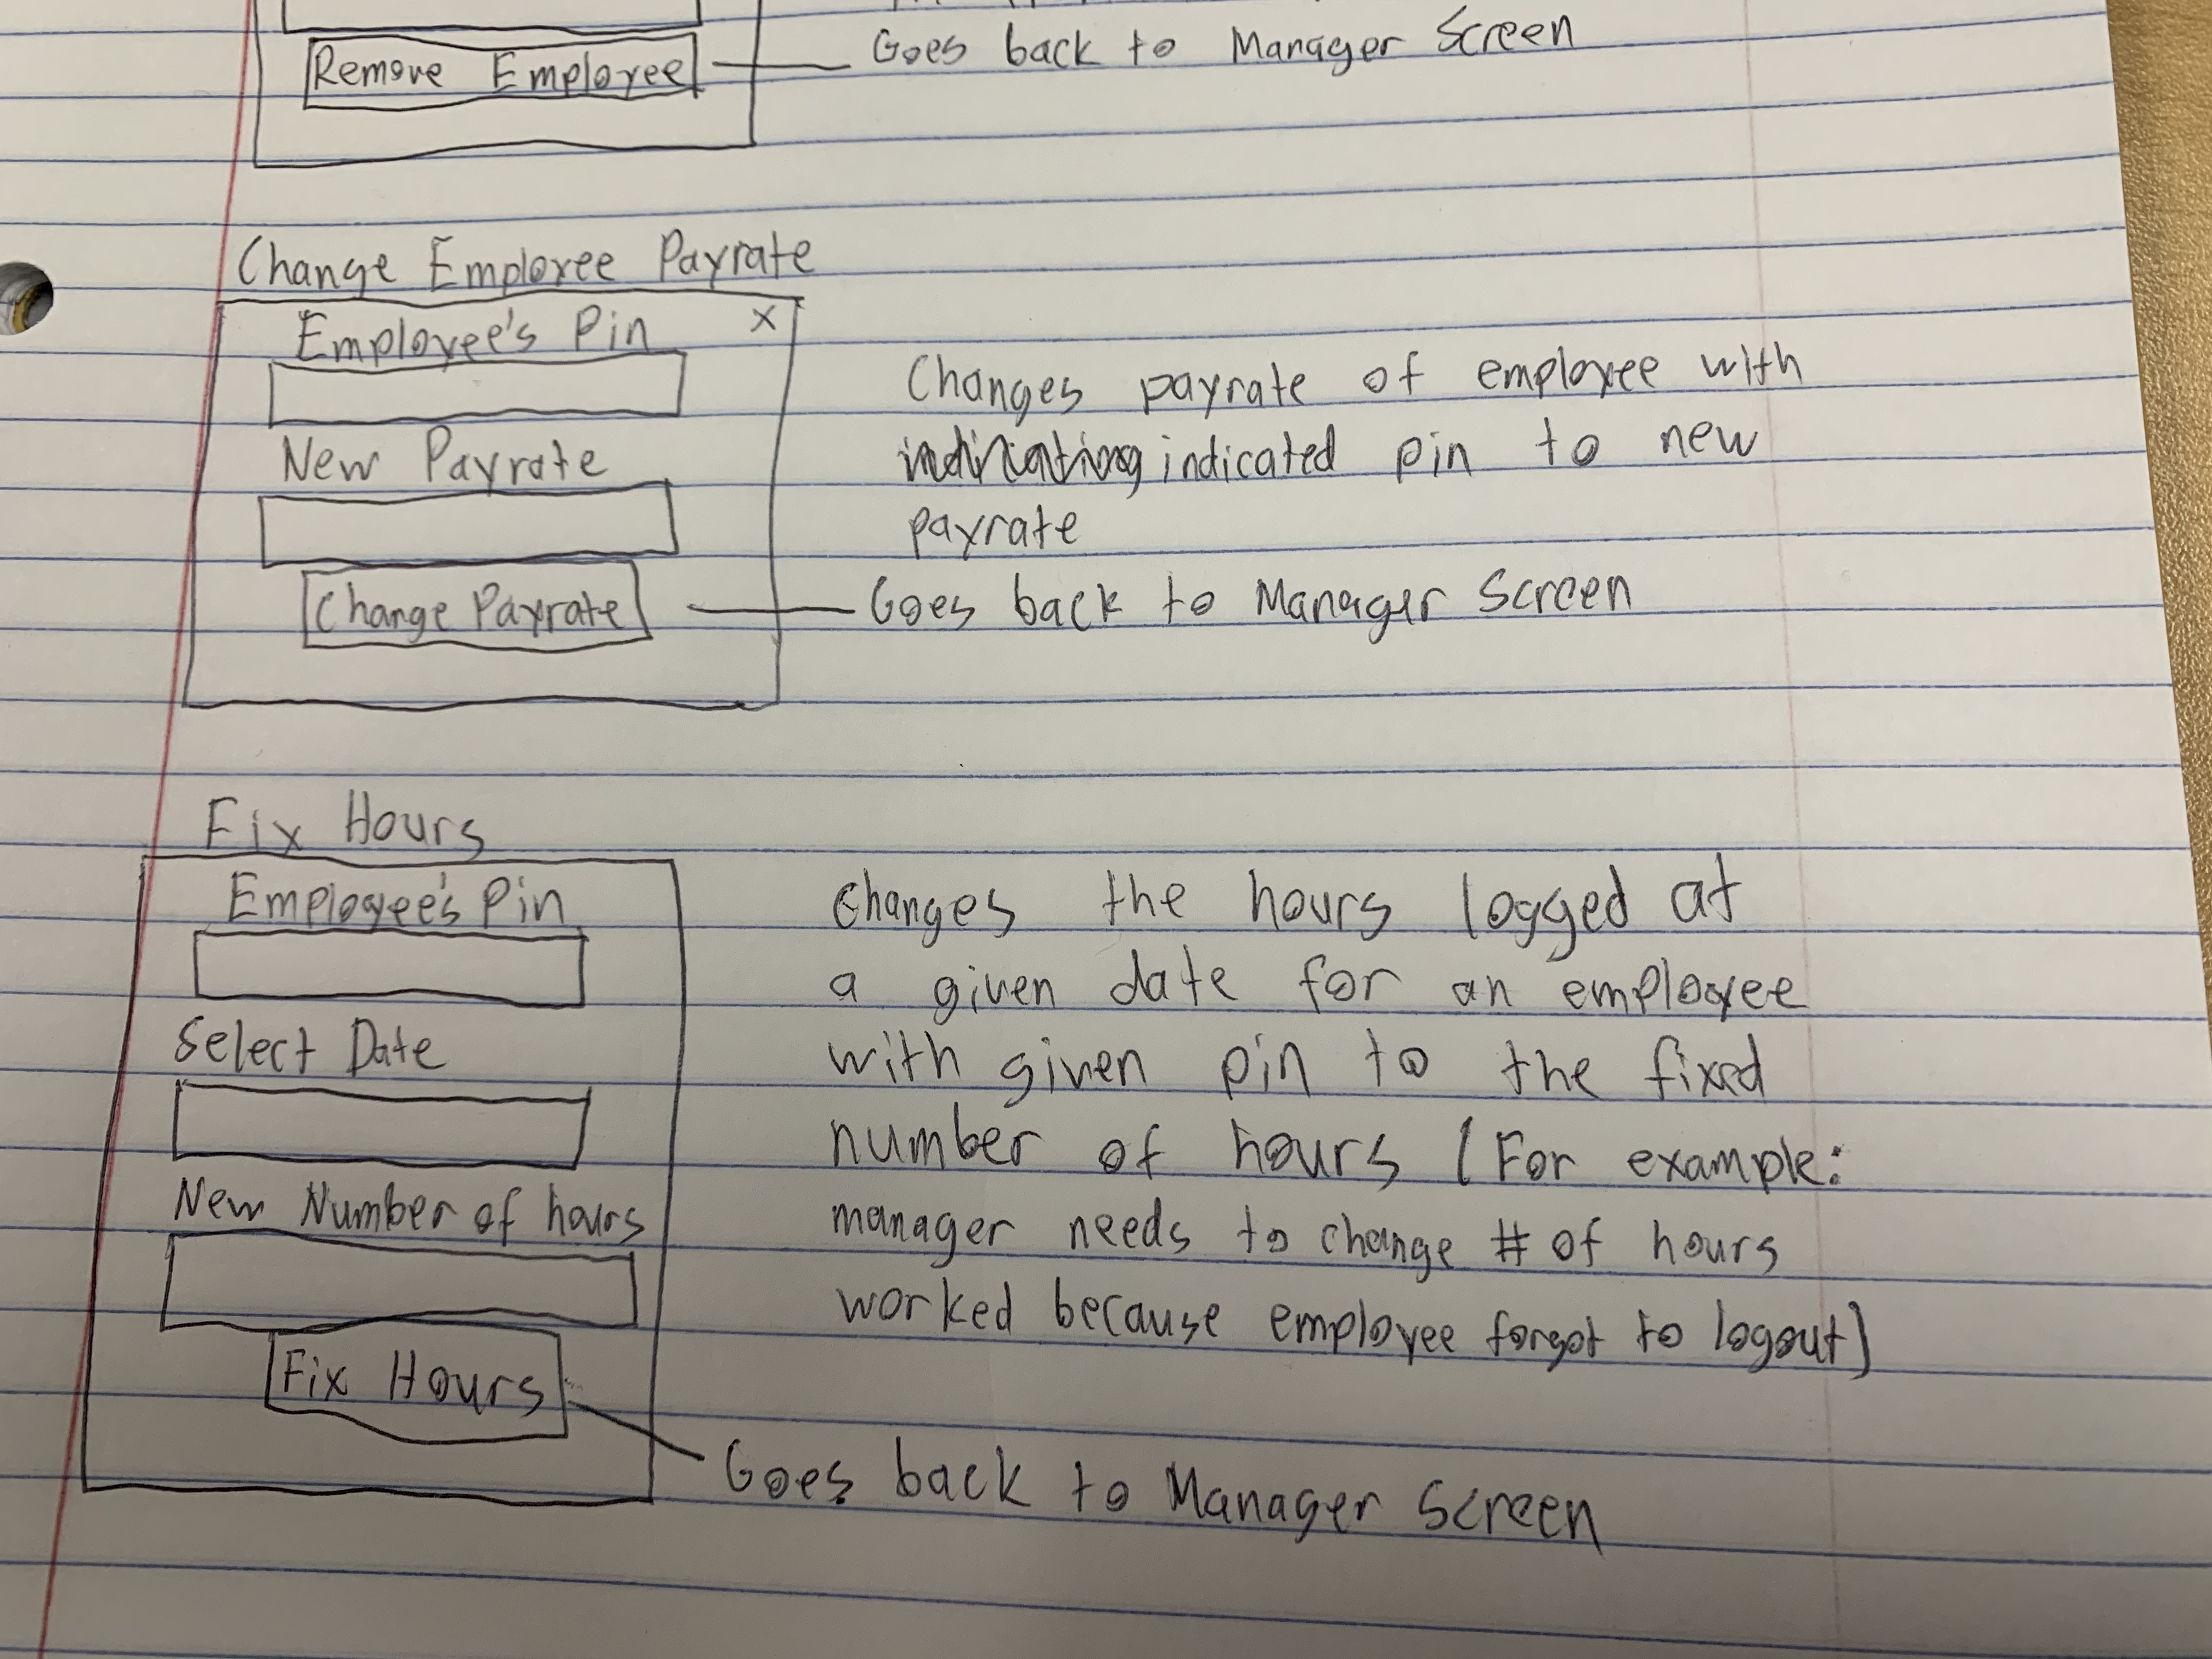 Remove Employee
Goes back to Manager Screen
Change Employee Payrate
Employee's Pin X
New Payrate
Change Payrate
Changes payrate of employee with
indicated pin to new
payrate
Goes back to Manager Screen
Fix Hours
Employee's Pin
Select Date
New Number of hours
Fix Hours
changes the hours logged at
a given date for an employee
with given pin to the fixed
number of hours (For example:
manager needs to change # of hours
worked because employee forgot to logout)
Goes back to Manager Screen